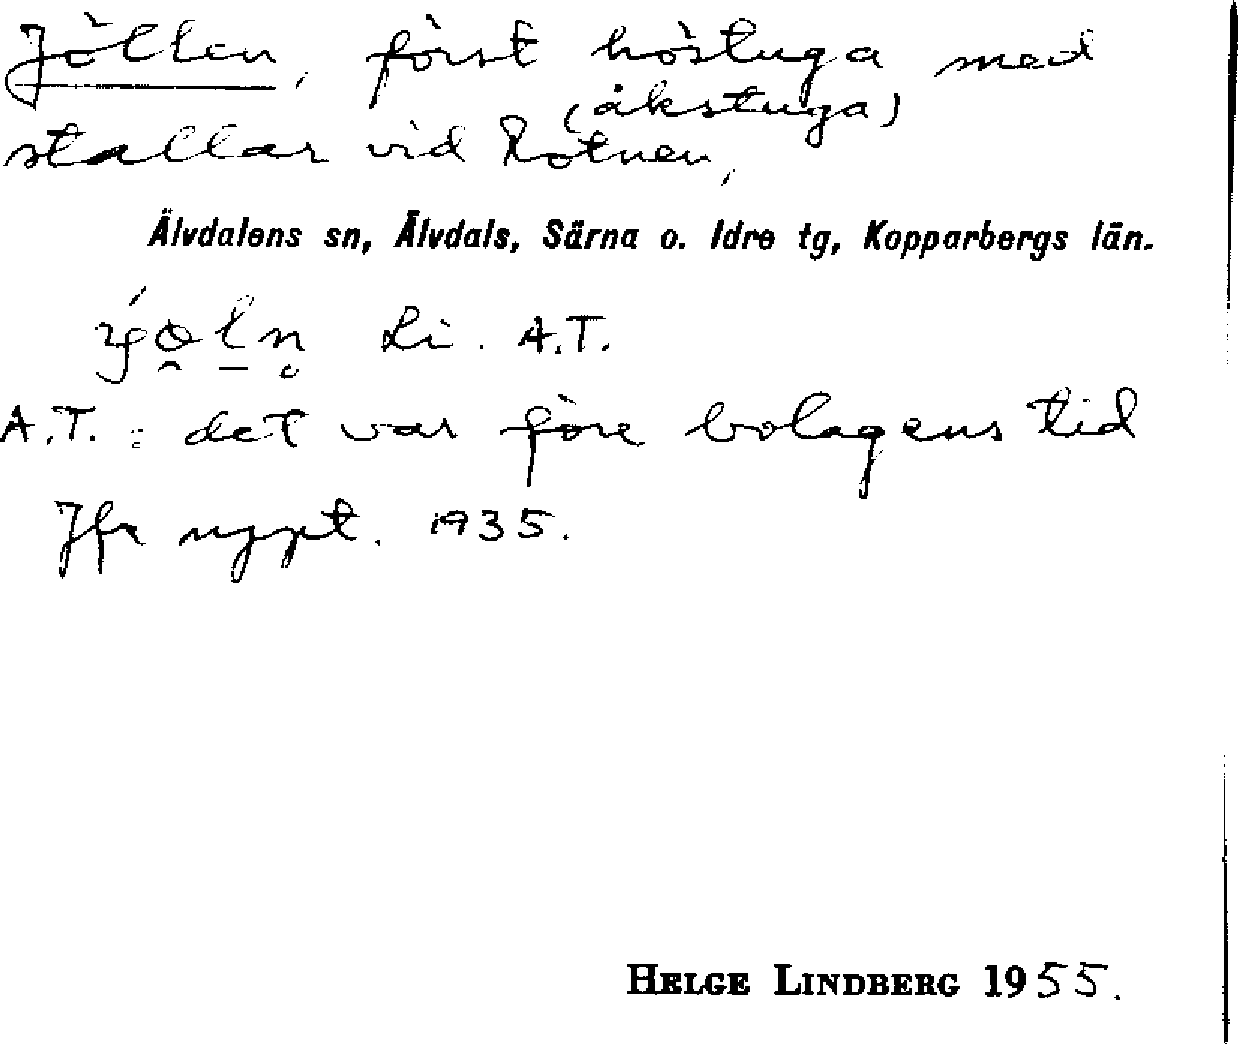 Jöllen, först höstuga med
(åkstuga)
stallar vid Rotnen,
Älvdalens sn, Älvdals, Särna o. Idre tg, Kopparbergs län.
Li. A.T.
A.T. : det var före bolagens tid
Jfr nyppt. 1935.
HELGE LINDBERG 1955.